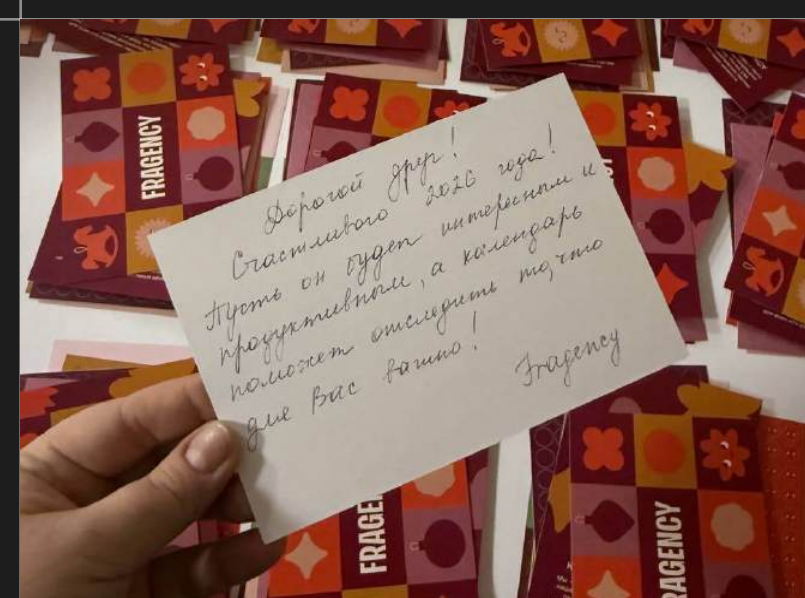 FRAGENCY
Дорогой друг!
Счастливого 2026 года!
Пусть он будет интересным и
продуктивным, а календарь
поможет отследить то, что
для Вас важно!
Fragency
FRAGE
RAGENCY